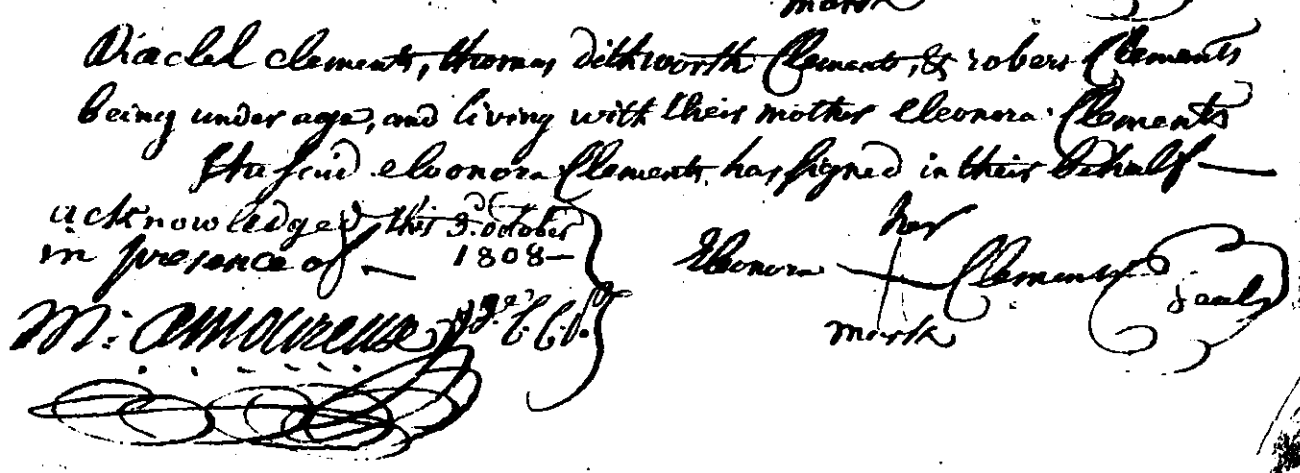 mark
clements, thomas dithworth Clements, & robert Clements
being under age, and living with their mother Eleonora Clements
the said eleonora Clements has signed in their behalf —
acknowledged this 3d. october
in presence of — 1808 —
her
Eleonora Clements seal
mark
M: amoureuse